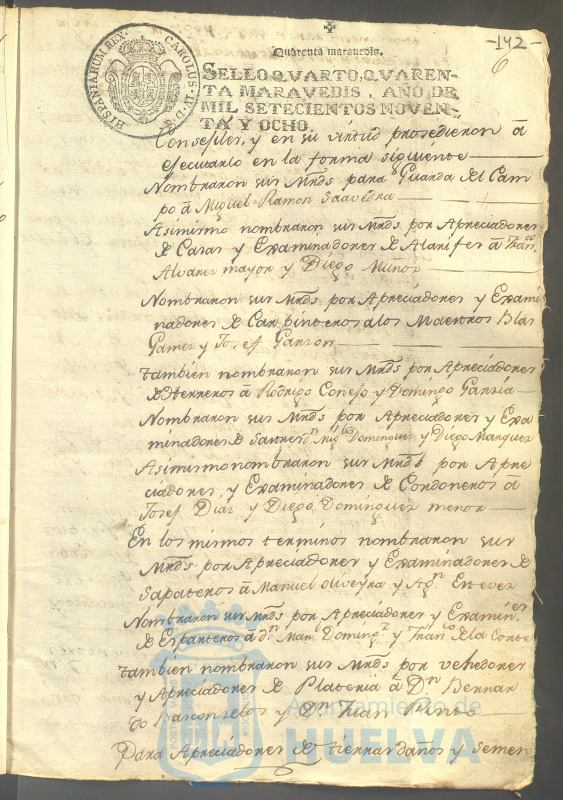 -142-
6
Quarenta maravedis.
HISPANIARUM REX. CAROLUS. IV. D. G.
SELLO QVARTO, QVAREN-
TA MARAVEDIS, AÑO DE
MIL SETECIENTOS NOVEN-
TA Y OCHO.
y en su virtud prosedieron â
efecutarlo en la forma siguiente
Nombraron sus Mrds para Guarda del Cam
po â Miguel Ramon Saavedra
Asimismo nombraron sus Mrds por Apreciadores
de Casas y Examinadores de Alarifes â Fran.co
Alvarez mayor y Diego Muños
Nombraron sus Mrds por Apreciadores y Exami
nadores de Carpinteros alos Maestros Blas
Gamez y Josef Garzon
tambien nombraron sus Mrds por Apreciadores
de Herreros â Rodrigo Conejo y Domingo Garzia
Nombraron sus Mrds por Apreciadores y Exa
minadores de Sastres dn Migl Dominguez y Diego Marquez
Asimismo nombraron sus Mrds por Apre
ciadores, y Examinadores de Cordoneros â
Josef Diaz y Diego Dominguez menor
En los mismos terminos nombraron sus
Mrds por Apreciadores y Examinadores de
Sapateros â Manuel oliveyra y Agn. Estevez
Nombraron sus Mrds por Apreciadores y Examin.es
de Esparteros â dn Manl Doming.z y Fran.co de la Corte
tambien nombraron sus Mrds por vehedores
y Apreciadores de Plateria â Dn Bernar
do Basconselos y Dn Juan Pinto
Para Apreciadores de tierras daños y semen
Ayuntamiento de
HUELVA